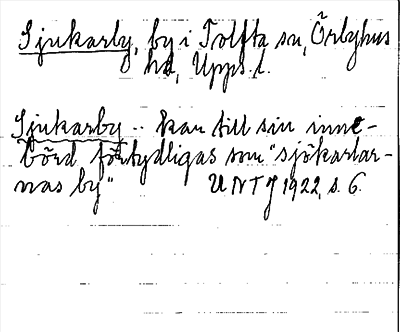 Sjukarby, by i Tolfta sn, Örbyhus
hd, Upps. l.
Sjukarby -- kan till sin inne-
börd förtydligas som "sjökarlar-
nas by" UNTJ 1922, s. 6.